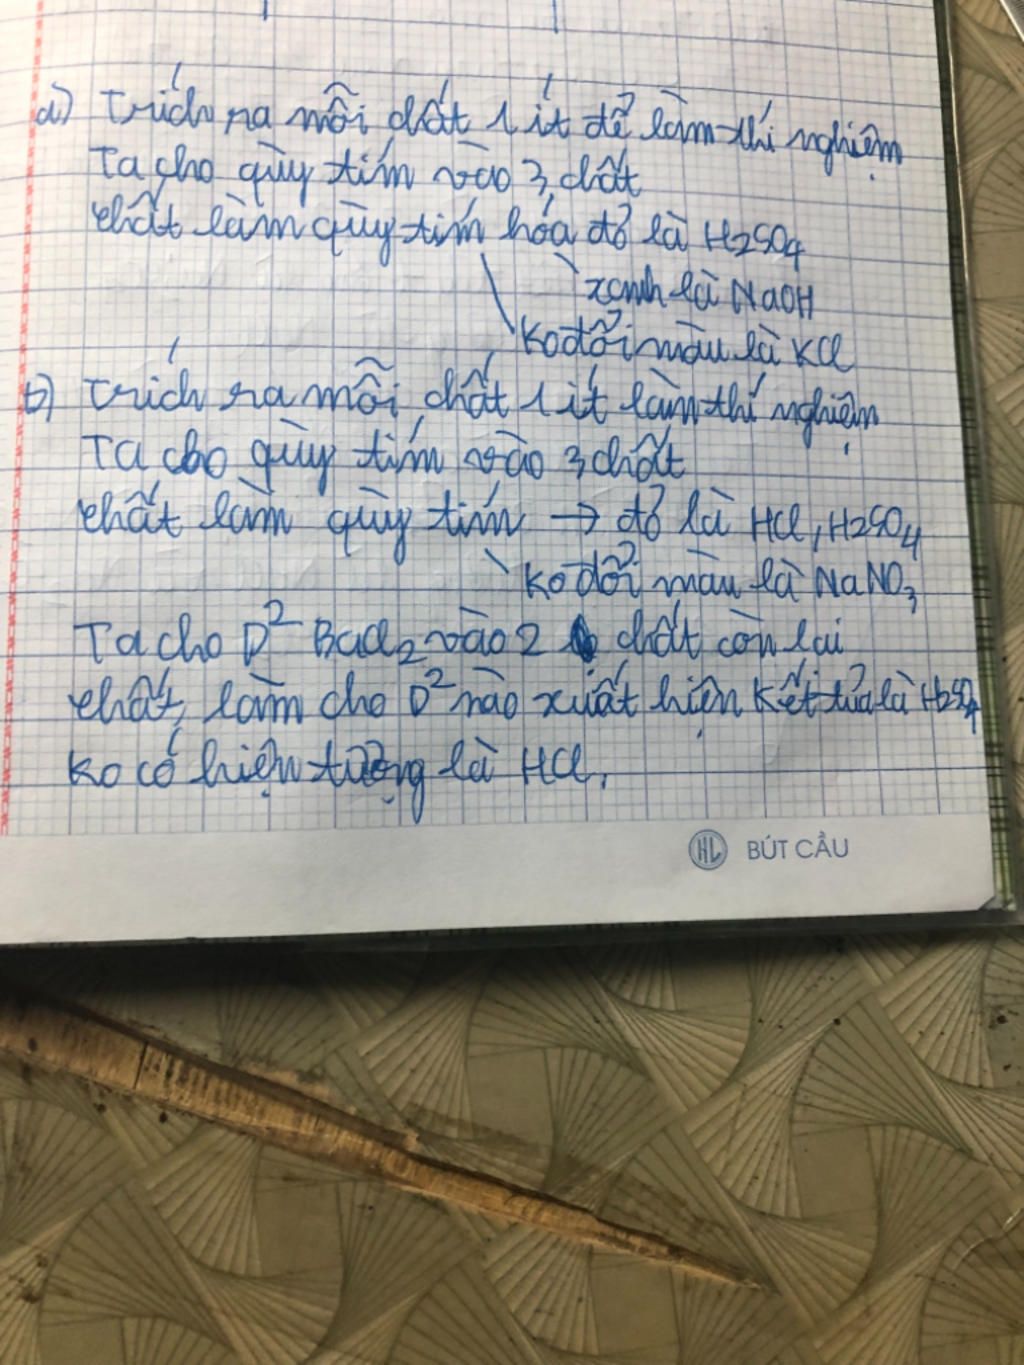 a) Trích ra mỗi chất 1 ít để làm thí nghiệm
Ta cho quỳ tím vào 3 chất
chất làm quỳ tím hóa đỏ là H2SO4
xanh là NaOH
Ko đổi màu là KCl
b) Trích ra mỗi chất 1 ít làm thí nghiệm
Ta cho quỳ tím vào 3 chất
chất làm quỳ tím → đỏ là HCl, H2SO4
Ko đổi màu là NaNO3
Ta cho D² BaCl2 vào 2 chất còn lại
chất làm cho D² nào xuất hiện kết tủa là H2SO4
Ko có hiện tượng là HCl.
HL BÚT CẦU